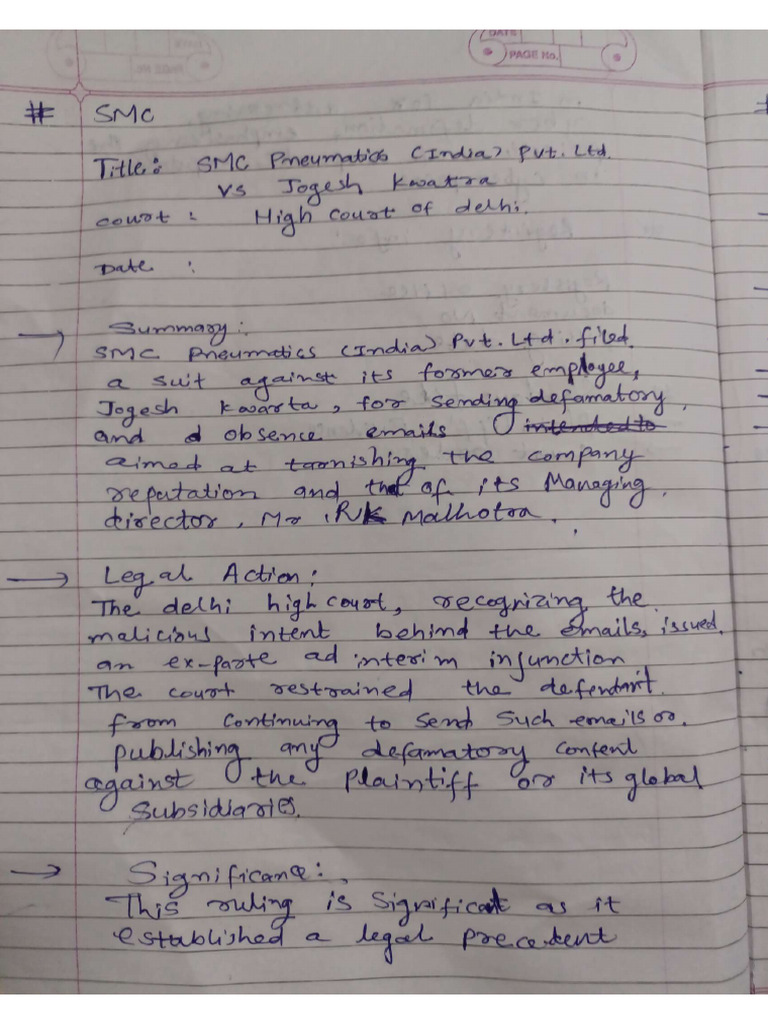 DATE
PAGE No.
# SMC
Title: SMC Pneumatics (India) Pvt. Ltd.
vs Jogesh Kwatra
court : High court of delhi.
Date :
→ Summary:
SMC Pneumatics (India) Pvt. Ltd. filed
a suit against its former employee,
Jogesh Kwarta, for sending defamatory
and d obsence emails intended to
aimed at tarnishing the company
reputation and that of its Managing
director, Mr. RK Malhotra.
→ Legal Action:
The delhi high court, recognizing the
malicious intent behind the emails, issued
an ex-parte ad interim injunction
The court restrained the defendant
from continuing to send such emails or
publishing any defamatory content
against the plaintiff or its global
subsidiaries.
→ Significance:
This ruling is significant as it
established a legal precedent